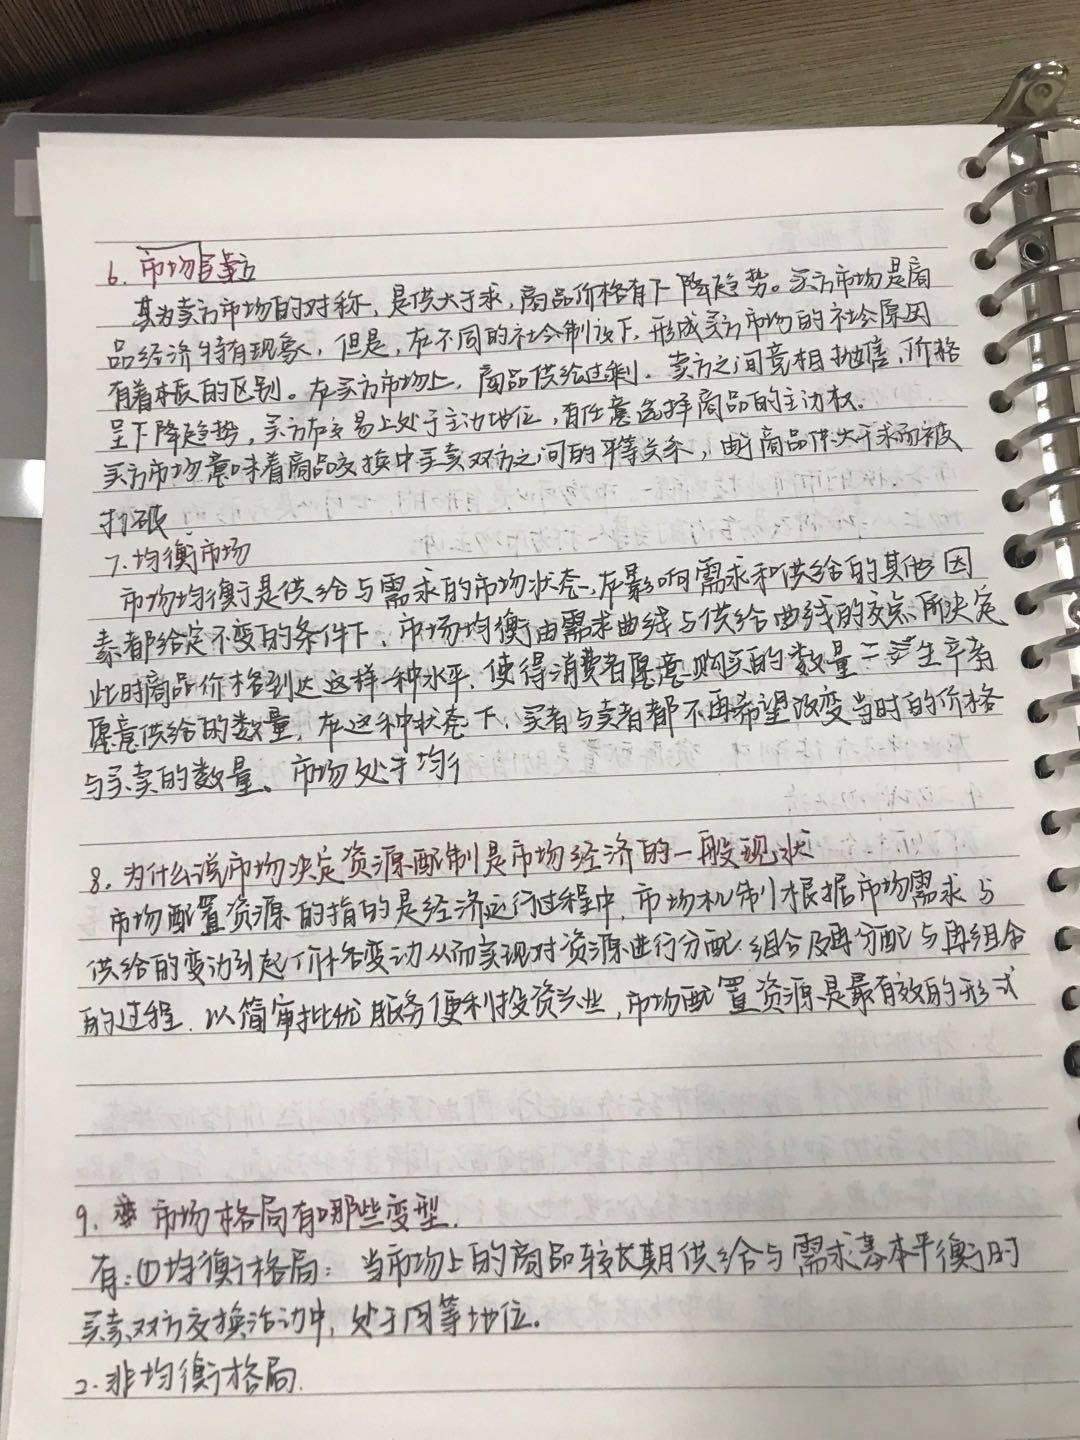 6. 市场
其为卖方市场的对称，是供大于求，商品价格有下降趋势。买方市场是商
品经济特有现象，但是，在不同的社会制度下，形成买方市场的社会原因
有着本质的区别。在买方市场上，商品供给过剩，卖方之间竞相抛售，价格
呈下降趋势，买方在交易上处于主动地位，有任意选择商品的主动权。
买方市场意味着商品交换中买卖双方之间的平等关系，由于商品供大于求而被
打破
7. 均衡市场
市场均衡是供给与需求的市场状态，在影响需求和供给的其他因
素都给定不变的条件下，市场均衡由需求曲线与供给曲线的交点所决定
此时商品价格到达这样一种水平，使得消费者愿意购买的数量二生产者
愿意供给的数量，在这种状态下，买者与卖者都不再希望改变当时的价格
与买卖的数量、市场处于均彳
8. 为什么说市场决定资源配制是市场经济的一般现状
市场配置资源的指的是经济运行过程中，市场机制根据市场需求与
供给的变动引起价格变动从而实现对资源进行分配、组合及再分配与再组合
的过程，以简审批优服务便利投资兴业，市场配置资源是最有效的形式
9. 市场格局有哪些变型.
有：①均衡格局：当市场上的商品较长期供给与需求基本平衡时
买卖双方交换活动中，处于同等地位。
2. 非均衡格局.